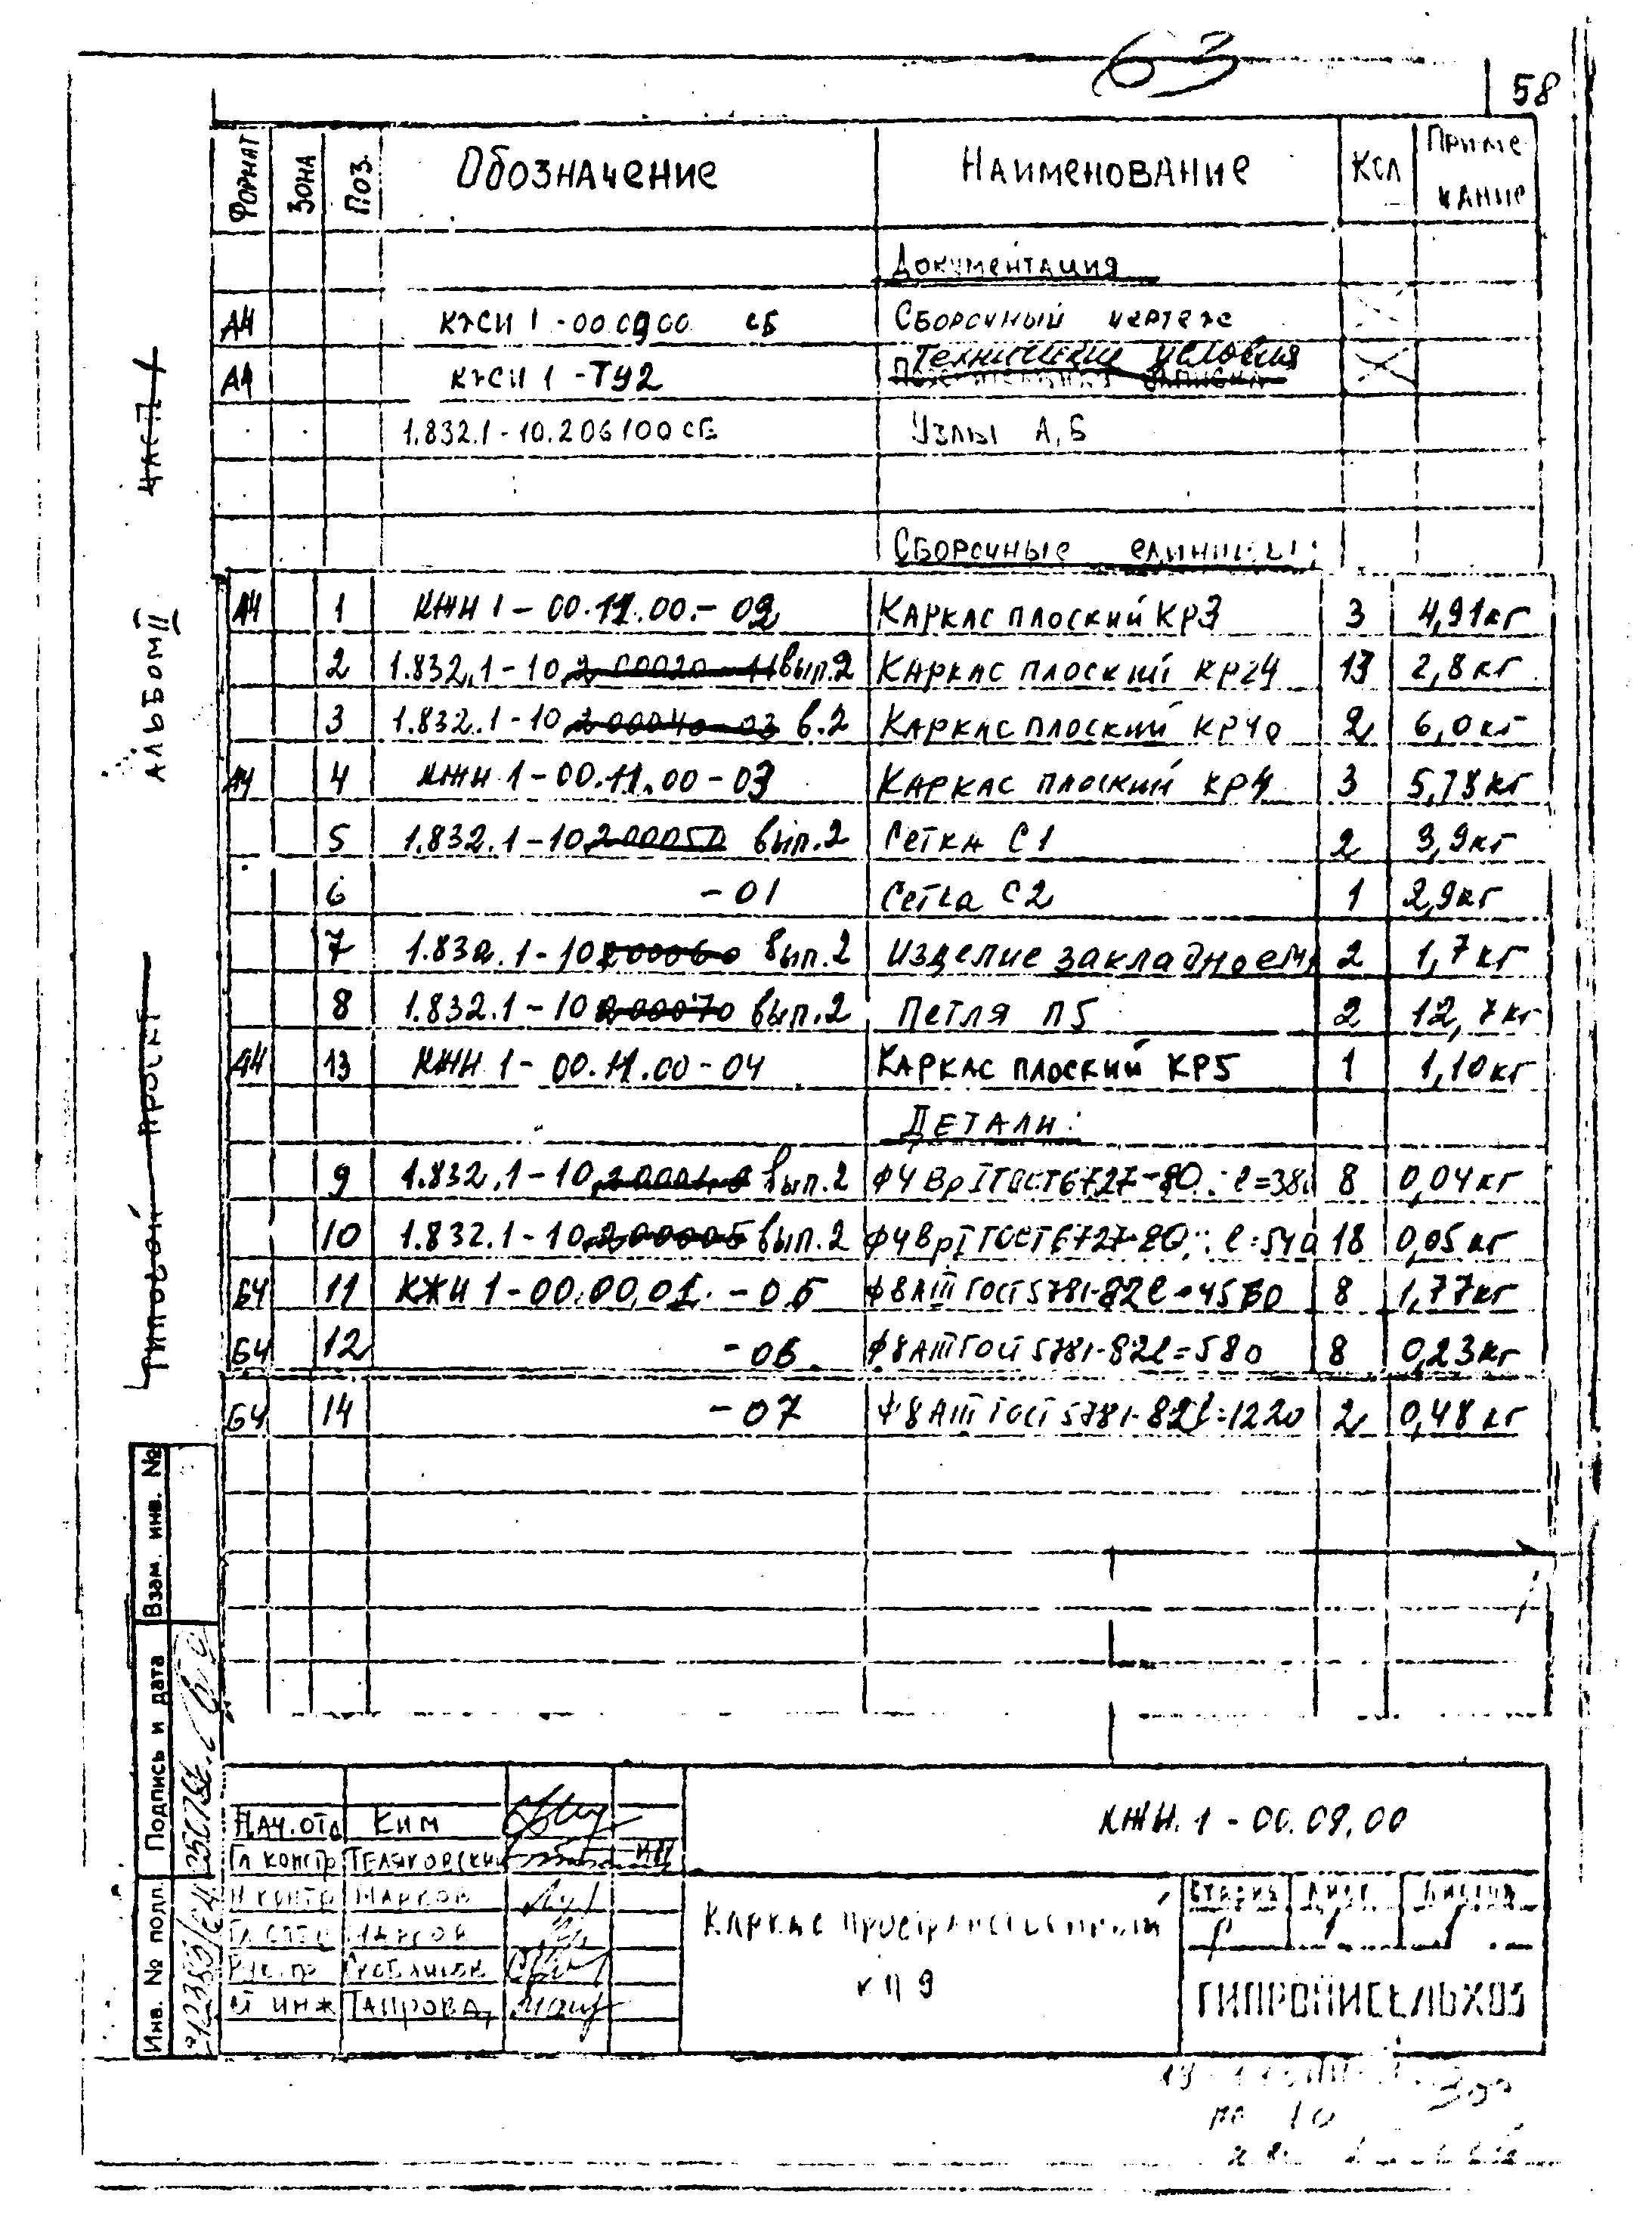 63
58
Формат Зона Поз. Обозначение Наименование Кол Приме
чание
Документация
А4 КЖИ 1-00.09.00 СБ Сборочный чертеж
А4 КЖИ 1-ТУ2 Технические условия
1.832.1-10.206100 СБ Узлы А, Б
Сборочные единицы:
А4 1 КЖИ 1-00.11.00-02 Каркас плоский КР3 3 4,91кг
2 1.832.1-10.200020-11 вып.2 Каркас плоский КР24 13 2,8кг
3 1.832.1-10.200040-03 в.2 Каркас плоский КР40 2 6,0кг
А4 4 КЖИ 1-00.11.00-03 Каркас плоский КР4 3 5,78кг
5 1.832.1-10.200050 вып.2 Сетка С1 2 3,9кг
6 -01 Сетка С2 1 2,9кг
7 1.832.1-10.200060 вып.2 Изделие закладное М1 2 1,7кг
8 1.832.1-10.200070 вып.2 Петля П5 2 12,7кг
А4 13 КЖИ 1-00.11.00-04 Каркас плоский КР5 1 1,10кг
Детали:
9 1.832.1-10 вып.2 ф4ВрI ГОСТ6727-80 ℓ=380 8 0,04кг
10 1.832.1-10.200005 вып.2 ф4ВрI ГОСТ6727-80 ℓ=540 18 0,05кг
БЧ 11 КЖИ 1-00.00.01-05 ф8АIII ГОСТ5781-82 ℓ=4550 8 1,77кг
БЧ 12 -06 ф8АIII ГОСТ 5781-82 ℓ=580 8 0,23кг
БЧ 14 -07 ф8АIII ГОСТ 5781-82 ℓ=1220 2 0,48кг
Типовой проект Альбом II Часть 1
Взам. инв. №
Подпись и дата
Инв. № подл.
КЖИ.1-00.09.00
Нач.отд Ким
Гл констр Теляковский
Н контр Марков
Гл спец Марков
Рук. гр
Ст инж Таирова
Каркас пространственный
КП 9
Стадия Лист Листов
Р 1 1
ГИПРОНИСЕЛЬХОЗ